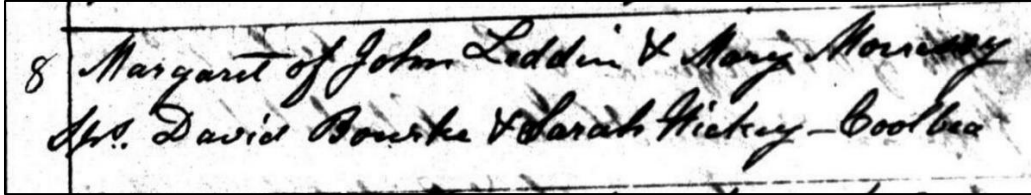 8 Margaret of John Leddin & Mary Morrissy
Sps. David Bourke & Sarah Hickey - Coolbea